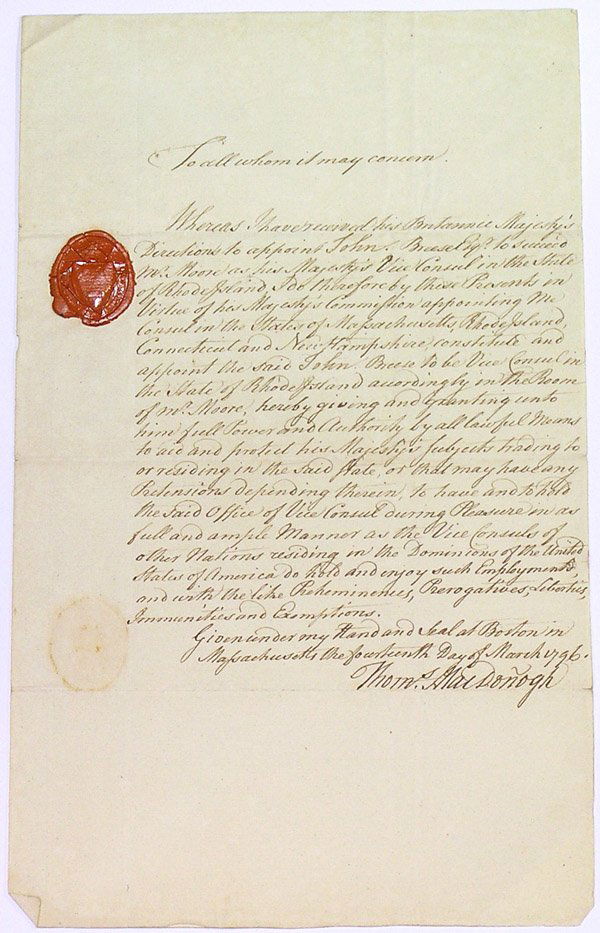 To all whom it may concern.
Whereas I have received his Britannic Majesty's
Directions to appoint John. Breese Esqr. to succeed
Mr. Moore as his Majesty's Vice Consul in the State
of Rhode Island, I do therefore by these Presents in
Virtue of his Majesty's Commission appointing Me
Consul in the States of Massachusetts, Rhode Island,
Connecticut and New Hampshire, constitute and
appoint the said John. Breese to be Vice Consul in
the State of Rhode Island accordingly in the Room
of Mr. Moore, hereby giving and granting unto
him full Power and Authority by all lawful Means
to aid and protect his Majesty's Subjects trading to
or residing in the said State, or that may have any
Pretensions depending therein, to have and to hold
the said Office of Vice Consul during Pleasure in as
full and ample Manner as the Vice Consuls of
other Nations residing in the Dominions of the United
States of America do hold and enjoy such Employments
and with the like Preheminences, Prerogatives, Liberties,
Immunities and Exemptions.
Given under my Hand and Seal at Boston in
Massachusetts the fourteenth Day of March 1796.
Thoms. MacDonogh